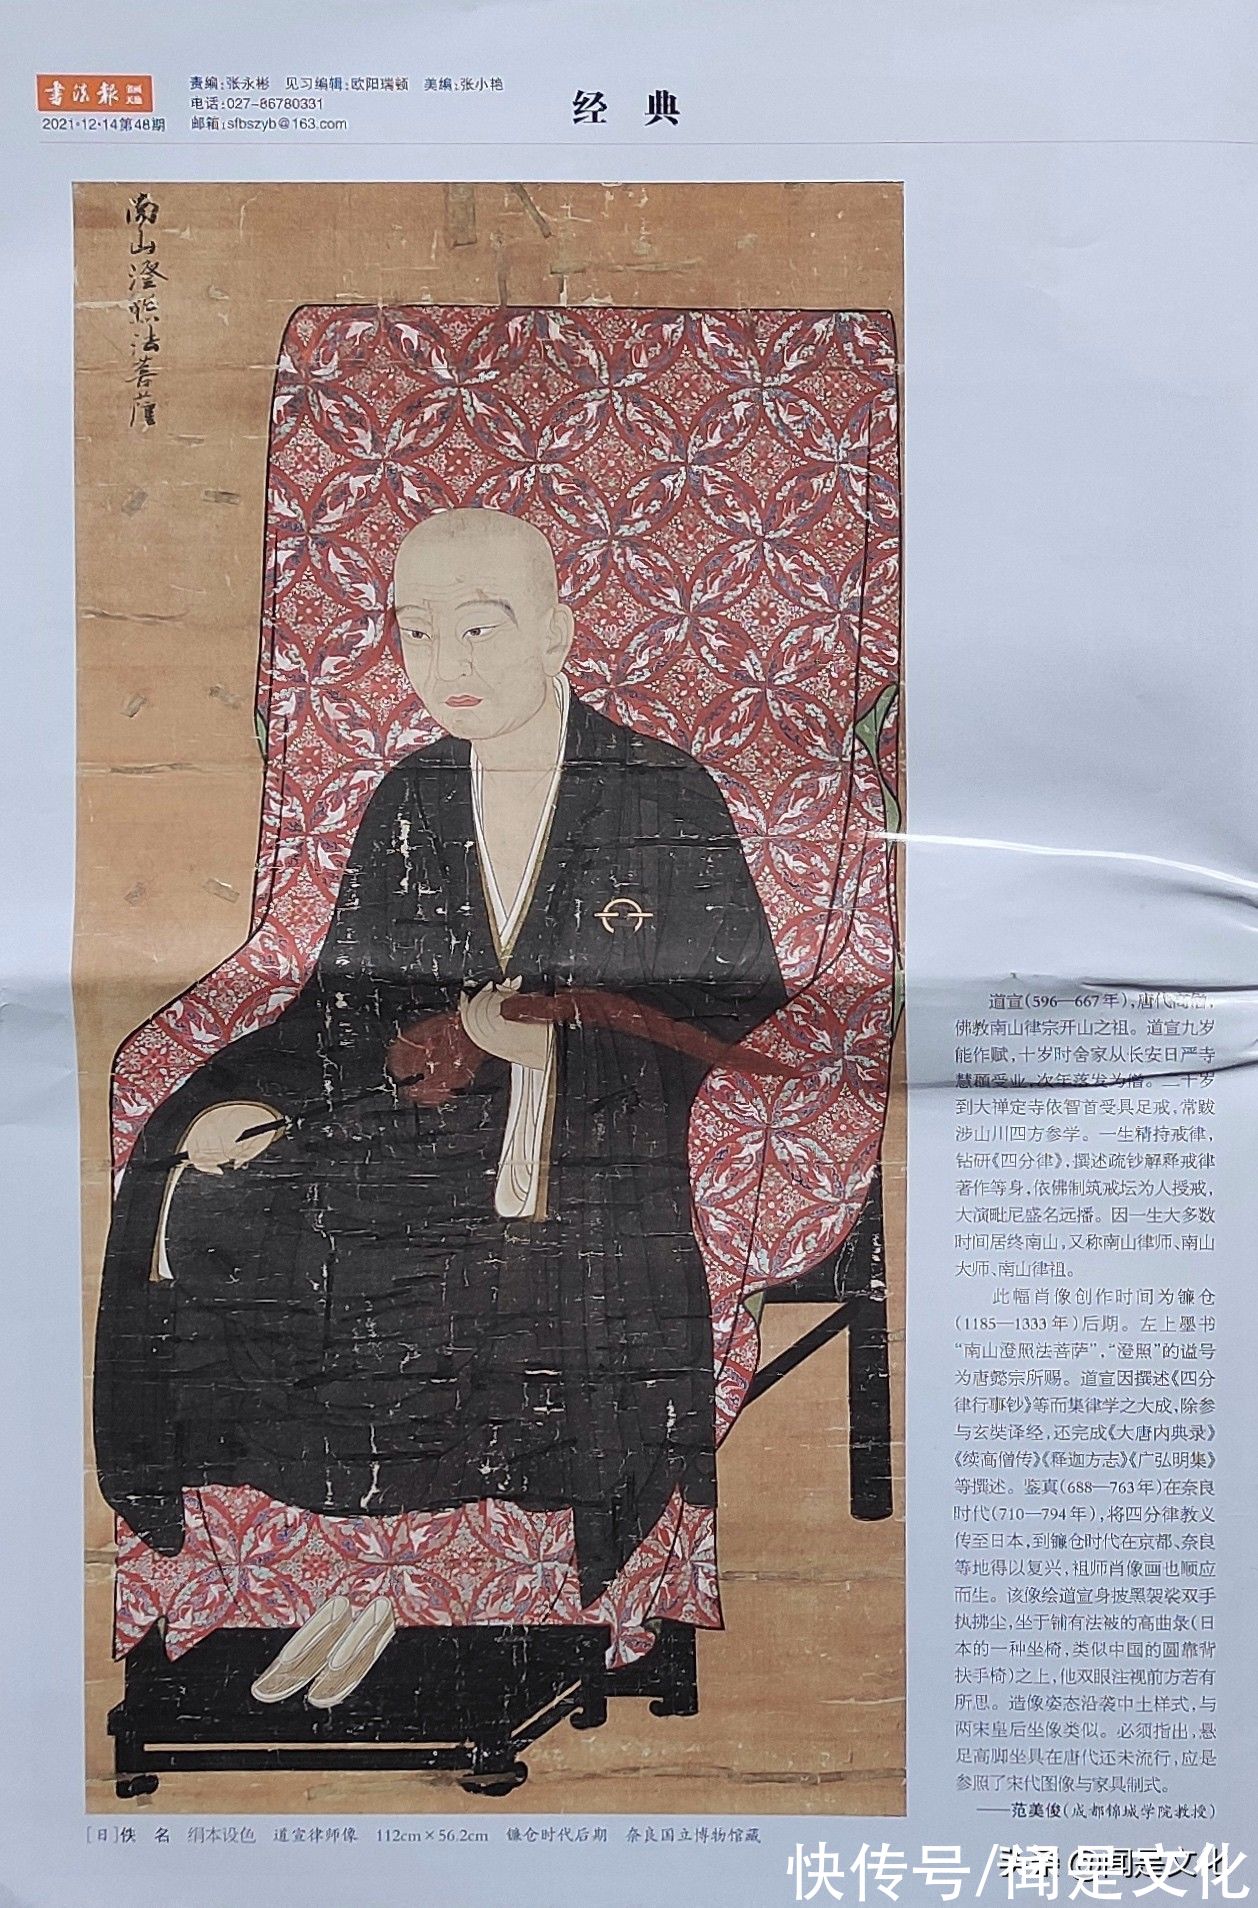 书法报 书画天地
2021·12·14第48期
责编:张永彬 见习编辑:欧阳瑞顿 美编:张小艳
电话:027-86780331
邮箱:sfbszyb@163.com
经 典
南山澄照法菩萨
道宣(596—667年),唐代高僧,
佛教南山律宗开山之祖。道宣九岁
能作赋,十岁时舍家从长安日严寺
慧頵受业,次年落发为僧。二十岁
到大禅定寺依智首受具足戒,常跋
涉山川四方参学。一生精持戒律,
钻研《四分律》,撰述疏钞解释戒律
著作等身,依佛制筑戒坛为人授戒,
大演毗尼盛名远播。因一生大多数
时间居终南山,又称南山律师、南山
大师、南山律祖。
此幅肖像创作时间为镰仓
(1185—1333年)后期。左上墨书
“南山澄照法菩萨”,“澄照”的谥号
为唐懿宗所赐。道宣因撰述《四分
律行事钞》等而集律学之大成,除参
与玄奘译经,还完成《大唐内典录》
《续高僧传》《释迦方志》《广弘明集》
等撰述。鉴真(688—763年)在奈良
时代(710—794年),将四分律教义
传至日本,到镰仓时代在京都、奈良
等地得以复兴,祖师肖像画也顺应
而生。该像绘道宣身披黑袈裟双手
执拂尘,坐于铺有法被的高曲彔(日
本的一种坐椅,类似中国的圆靠背
扶手椅)之上,他双眼注视前方若有
所思。造像姿态沿袭中土样式,与
两宋皇后坐像类似。必须指出,悬
足高脚坐具在唐代还未流行,应是
参照了宋代图像与家具制式。
——范美俊(成都锦城学院教授)
[日]佚 名 绢本设色 道宣律师像 112cm×56.2cm 镰仓时代后期 奈良国立博物馆藏
头条 @闻是文化
快传号/闻是文化